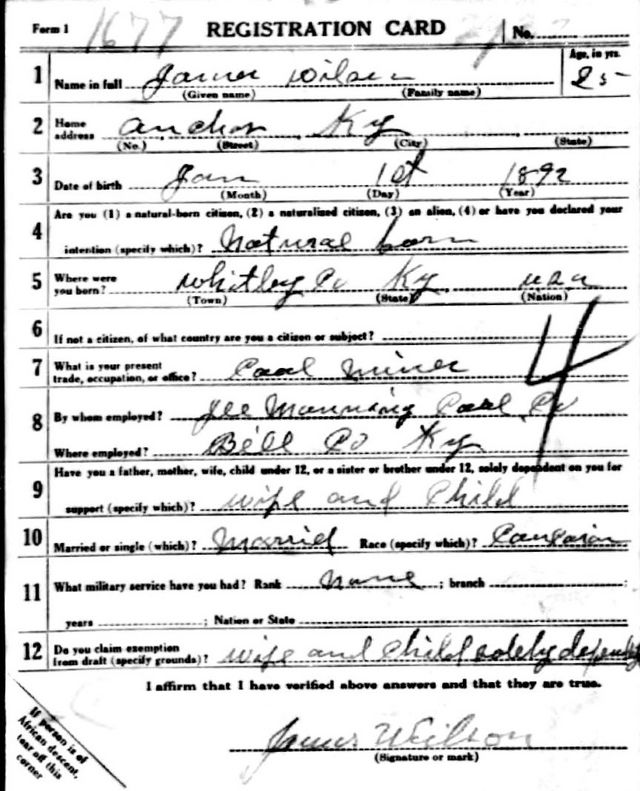 Form 1 1677 REGISTRATION CARD No.
Age, in yrs.
1 Name in full James Wilson 25
(Given name) (Family name)
2 Home address Anchor, Ky
(No.) (Street) (City) (State)
3 Date of birth Jan 1st 1892
(Month) (Day) (Year)
4 Are you (1) a natural-born citizen, (2) a naturalized citizen, (3) an alien, (4) or have you declared your
intention (specify which)? Natural born
5 Where were you born? Whitley Co Ky USA
(Town) (State) (Nation)
6 If not a citizen, of what country are you a citizen or subject?
7 What is your present trade, occupation, or office? Coal Miner
4
8 By whom employed? Manning Coal Co
Where employed? Bell Co Ky
9 Have you a father, mother, wife, child under 12, or a sister or brother under 12, solely dependent on you for
support (specify which)? wife and child
10 Married or single (which)? Married Race (specify which)? Caucasian
11 What military service have you had? Rank None ; branch ;
years ; Nation or State
12 Do you claim exemption from draft (specify grounds)? wife and child solely
I affirm that I have verified above answers and that they are true.
James Wilson
(Signature or mark)
If person is of
African descent,
tear off this
corner